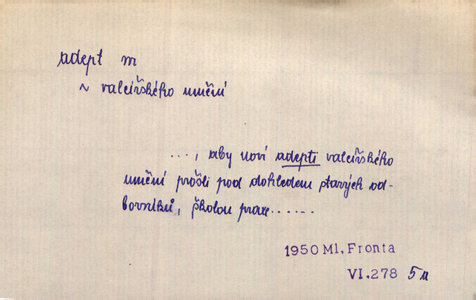 adept m
~ valcířského umění
..., aby noví adepti valcířského
umění prošli pod dohledem starých od-
borníků, školou praxe......
1950 Ml. Fronta
VI. 278 5 u